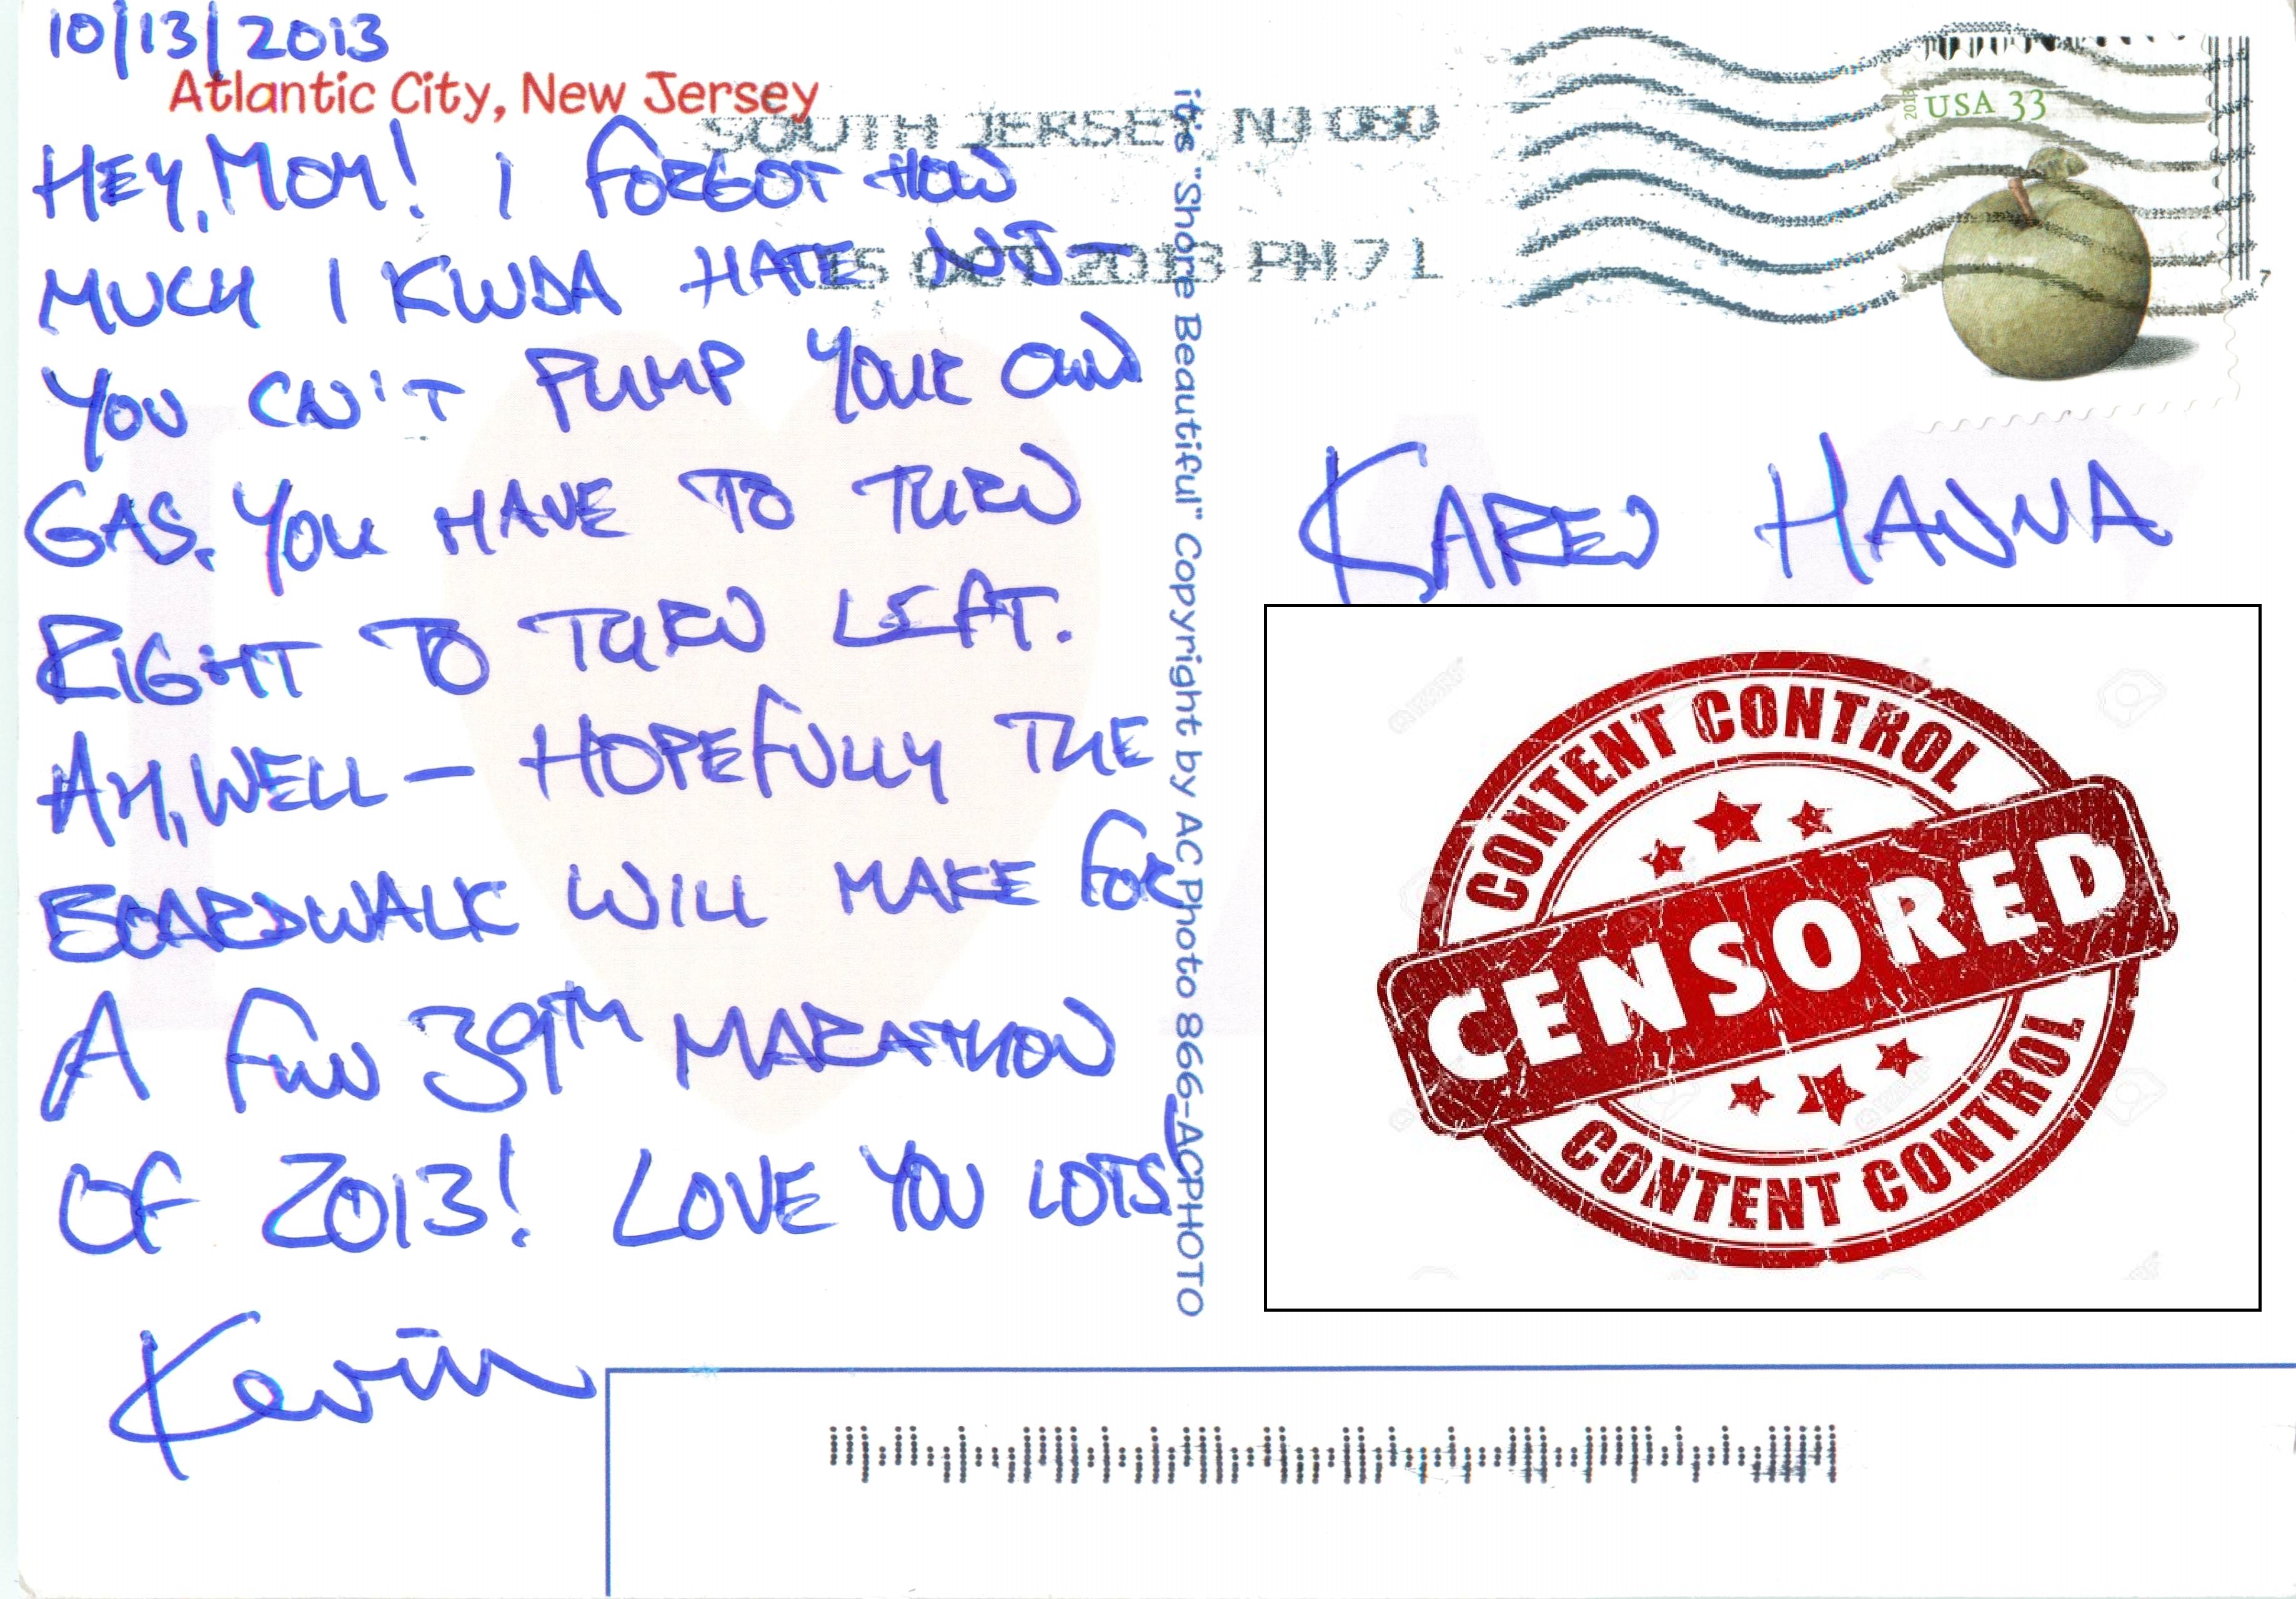 10/13/2013
Atlantic City, New Jersey
HEY, MOM! I FORGOT HOW
MUCH I KINDA HATE NJ—
YOU CAN'T PUMP YOUR OWN
GAS. YOU HAVE TO TURN
RIGHT TO TURN LEFT.
AH, WELL — HOPEFULLY THE
BOARDWALK WILL MAKE FOR
A FUN 39TH MARATHON
OF 2013! LOVE YOU LOTS!
Kevin
it's "Shore Beautiful" Copyright by AC Photo 866-ACPHOTO
SOUTH JERSEY NJ 080
15 OCT 2013 PM 7 L
2013
USA 33
7
KAREN HANNA
CONTENT CONTROL
CENSORED
CONTENT CONTROL